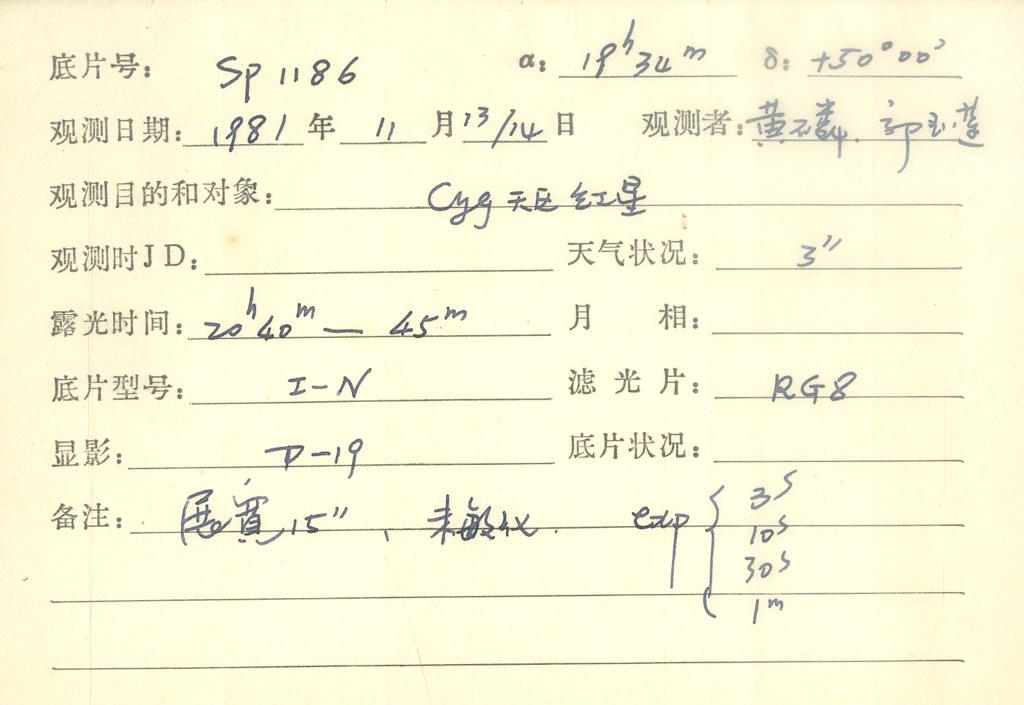 底片号: Sp 1186 α: 19ʰ34ᵐ δ: +50°00′
观测日期: 1981 年 11 月 13/14 日 观测者: 黄磷. 郭玉莲
观测目的和对象: Cyg 天区 红星
观测时JD: 天气状况: 3″
露光时间: 20ʰ40ᵐ — 45ᵐ 月 相:
底片型号: I-N 滤光片: RG8
显影: D-19 底片状况:
备注: 展寬 15″、未敏化. exp { 3ˢ
10ˢ
30ˢ
1ᵐ